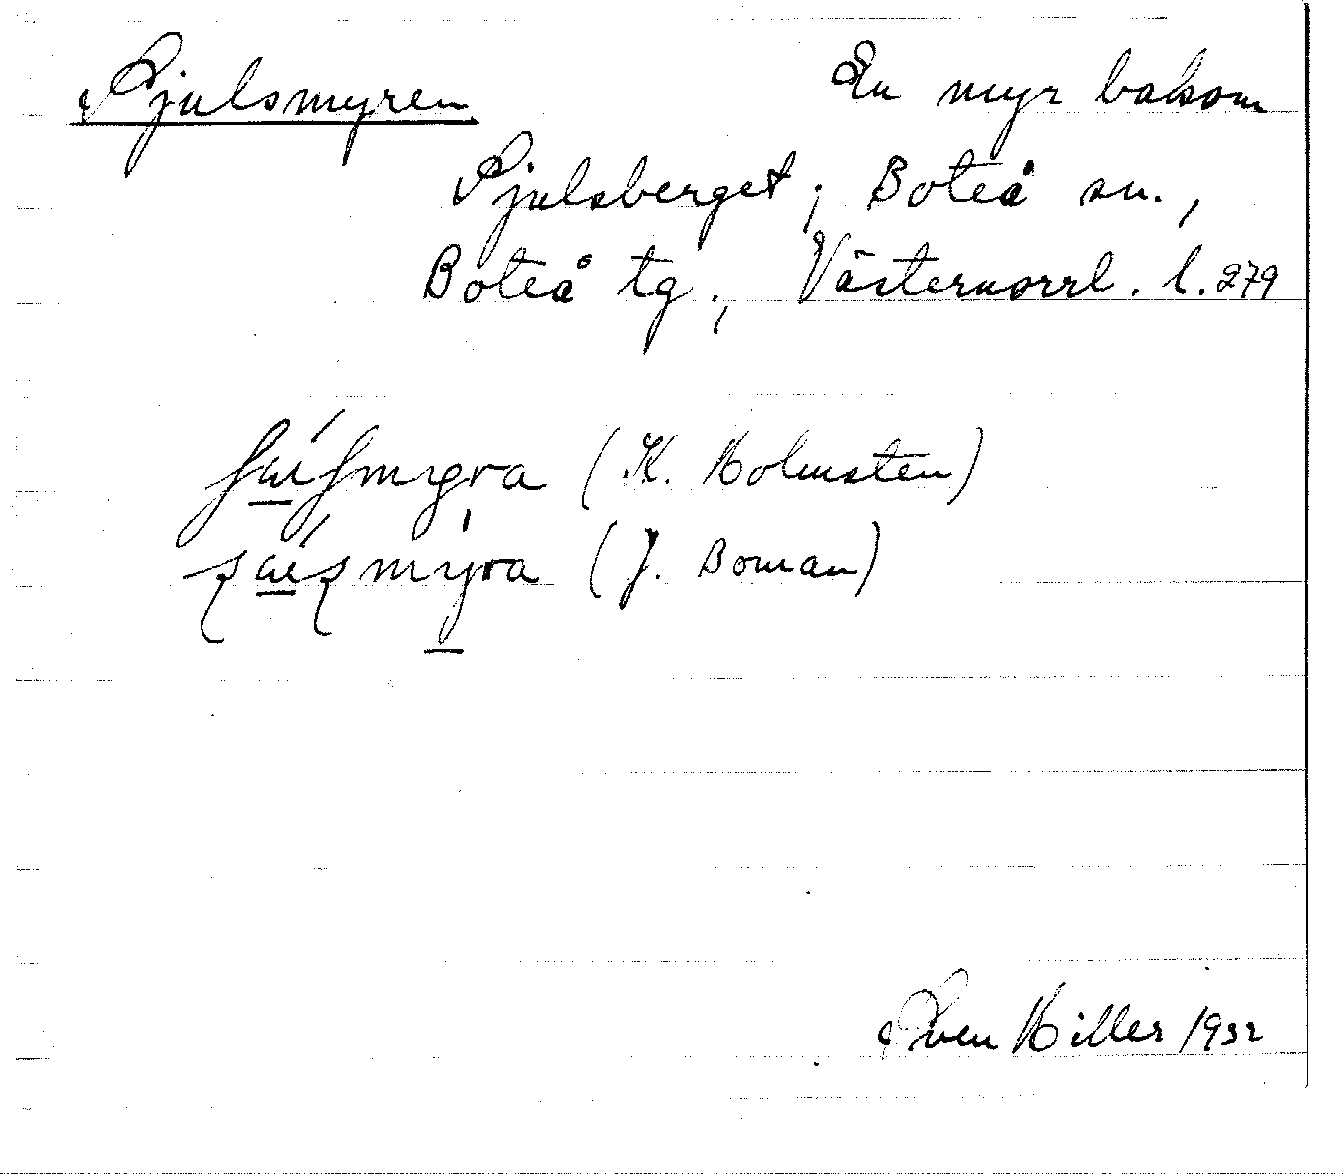 Sjulsmyren En myr bakom
Sjulsberget; Boteå sn.,
Boteå tg., Västernorrl. l. 279
(K. Holmsten)
(J. Boman)
Sven Hiller 1932